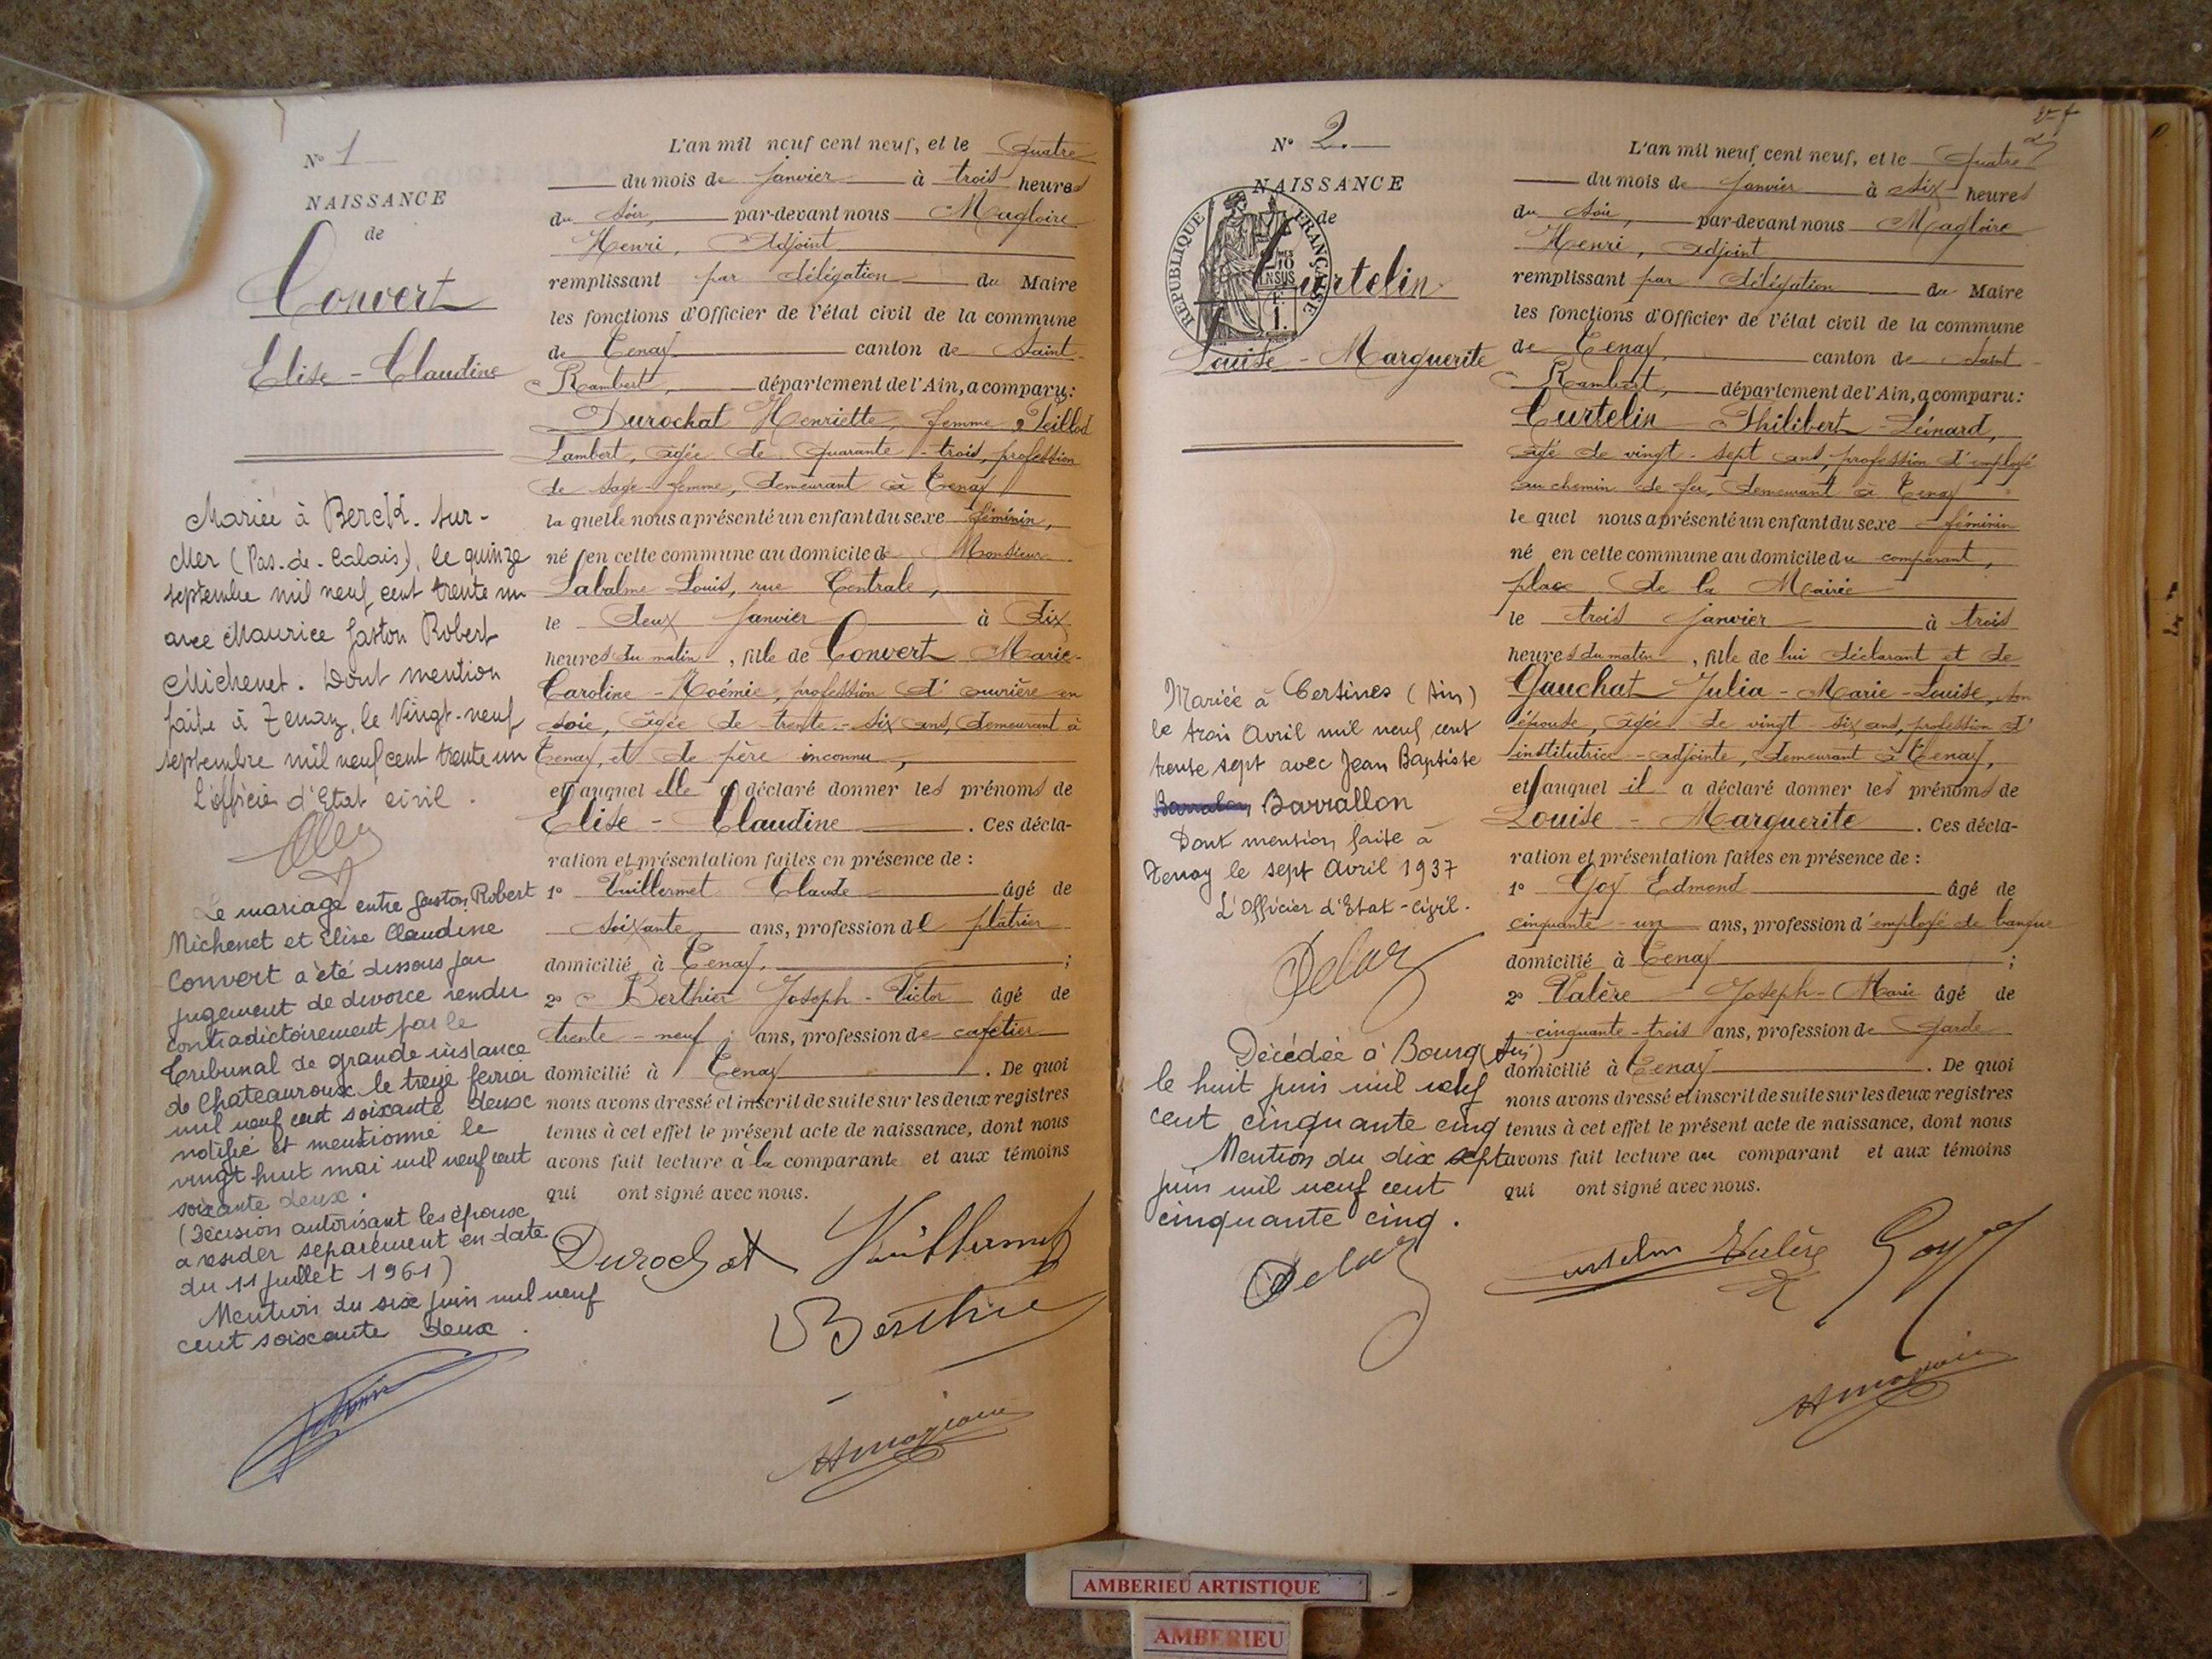 N° 1
NAISSANCE
de
Convert
Elise - Claudine
Mariée à Berck-sur-
Mer (Pas-de-Calais), le quinze
septembre mil neuf cent trente un
avec Maurice Gaston Robert
Michenet. Dont mention
faite à Tenay, le vingt-neuf
septembre mil neuf cent trente un
L'officier d'Etat civil.
Le mariage entre Gaston Robert
Michenet et Elise Claudine
Convert a été dissous par
jugement de divorce rendu
contradictoirement par le
Tribunal de grande instance
de Chateauroux le treize fevrier
mil neuf cent soixante deux
notifié et mentionné le
vingt huit mai mil neuf cent
soixante deux.
(Décision autorisant les époux
a resider separement en date
du 11 juillet 1961)
Mention du six juin mil neuf
cent soixante deux.
L'an mil neuf cent neuf, et le quatre
du mois de Janvier à trois heures
du soir, par-devant nous Magloire
Henri, Adjoint
remplissant par délégation du Maire
les fonctions d'Officier de l'état civil de la commune
de Tenay canton de Saint-
Rambert, département de l'Ain, a comparu:
Durochat Henriette, femme Teillod
Lambert, âgée de quarante-trois, profession
de sage-femme, demeurant à Tenay
la quelle nous a présenté un enfant du sexe féminin,
né en cette commune au domicile de Monsieur
Labalme Louis, rue Centrale,
le deux Janvier à dix
heures du matin, fille de Convert Marie-
Caroline-Noémie, profession d'ouvrière en
soie, âgée de trente-six ans, demeurant à
Tenay, et de père inconnu,
et auquel elle a déclaré donner les prénoms de
Elise - Claudine. Ces décla-
ration et présentation faites en présence de :
1° Vuillermet Claude âgé de
soixante ans, profession de plâtrier
domicilié à Tenay, ;
2° Berthier Joseph-Victor âgé de
trente-neuf ans, profession de cafetier
domicilié à Tenay. De quoi
nous avons dressé et inscrit de suite sur les deux registres
tenus à cet effet le présent acte de naissance, dont nous
avons fait lecture à la comparante et aux témoins
qui ont signé avec nous.
Durochat Vuillermet
Berthier
N° 2
NAISSANCE
de
RÉPUBLIQUE FRANÇAISE
Curtelin
Louise - Marguerite
Mariée à Certines (Ain)
le trois Avril mil neuf cent
trente sept avec Jean Baptiste
Barrallon
Dont mention faite à
Tenay le sept Avril 1937
L'Officier d'Etat-civil.
Décédée à Bourg (Ain)
le huit juin mil neuf
cent cinquante cinq
Mention du dix sept
juin mil neuf cent
cinquante cinq.
L'an mil neuf cent neuf, et le quatre
du mois de Janvier à six heures
du soir, par-devant nous Magloire
Henri, adjoint
remplissant par délégation du Maire
les fonctions d'Officier de l'état civil de la commune
de Tenay, canton de Saint-
Rambert, département de l'Ain, a comparu:
Curtelin Philibert-Léonard,
âgé de vingt-sept ans, profession d'employé
au chemin de fer, demeurant à Tenay
le quel nous a présenté un enfant du sexe féminin
né en cette commune au domicile du comparant,
place de la Mairie
le trois janvier à trois
heures du matin, fille de lui déclarant et de
Gauchat Julia-Marie-Louise, son
épouse, âgée de vingt-six ans, profession d'
institutrice-adjointe, demeurant à Tenay,
et auquel il a déclaré donner les prénoms de
Louise - Marguerite. Ces décla-
ration et présentation faites en présence de :
1° Goy Edmond âgé de
cinquante-un ans, profession d'employé de banque
domicilié à Tenay ;
2° Valère Joseph-Marie âgé de
cinquante-trois ans, profession de garde
domicilié à Tenay. De quoi
nous avons dressé et inscrit de suite sur les deux registres
tenus à cet effet le présent acte de naissance, dont nous
avons fait lecture au comparant et aux témoins
qui ont signé avec nous.
Curtelin Valère Goy
AMBERIEU ARTISTIQUE
AMBERIEU